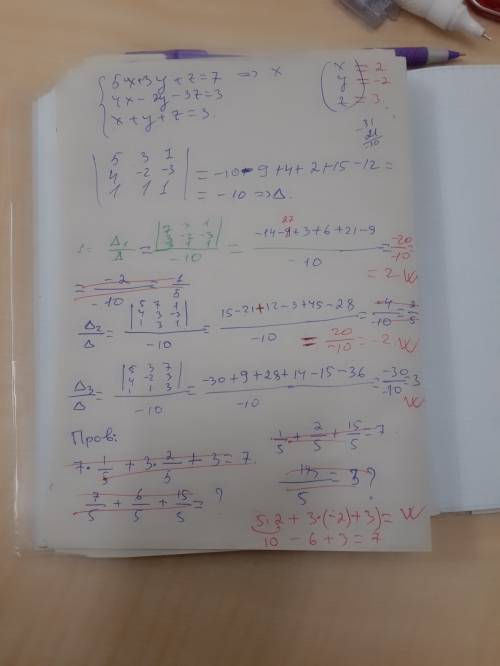 5x+3y+z=7 => x
4x-2y-3z=3
x+y+z=3.
x = 2
y = -2
z = 3
-31
21
-10
|5 3 1|
|4 -2 -3| = -10-9+4+2+15-12=
|1 1 1| = -10 => Δ.
Δ1/Δ = / -10 = -14-27+3+6+21-9 / -10 = -20/-10 = 2. W
= -2/-10 = 1/5
Δ2/Δ = |5 7 1; 4 3 -3; 1 3 1| / -10 = 15-21+12-3+45-28 / -10 = -4/-10 = 2/5
= 20/-10 = -2. W
Δ3/Δ = |5 3 7; 4 -2 3; 1 1 3| / -10 = -30+9+28+14-15-36 / -10 = -30/-10 = 3
W
Пров:
1/5 + 2/5 + 15/5 = 7
7·1/5 + 3·2/5 + 3 = 7.
7/5 + 6/5 + 15/5 = ?
/5 = 3?
5·2 + 3·(-2)+3) = W
10 - 6 + 3 = 7